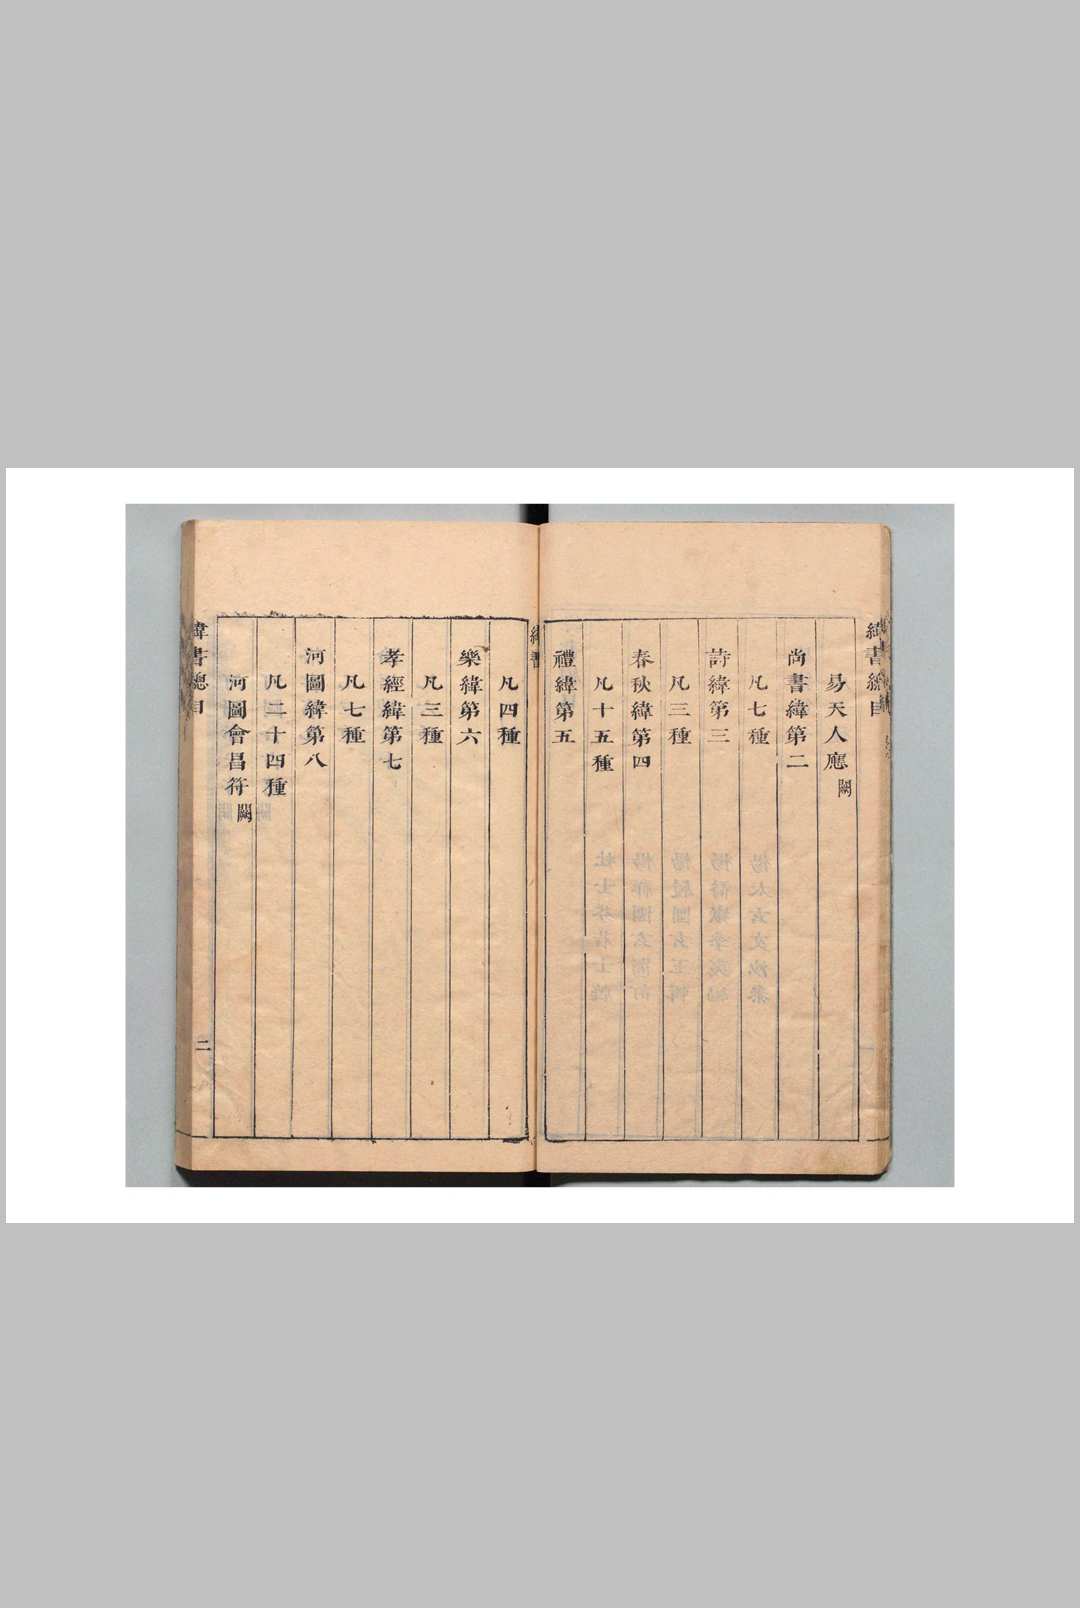 緯書總目
易天人應闕
尚書緯第二
凡七種
詩緯第三
凡三種
春秋緯第四
凡十五種
禮緯第五
緯書
凡四種
樂緯第六
凡三種
孝經緯第七
凡七種
河圖緯第八
凡二十四種
河圖會昌符闕
緯書總目
二